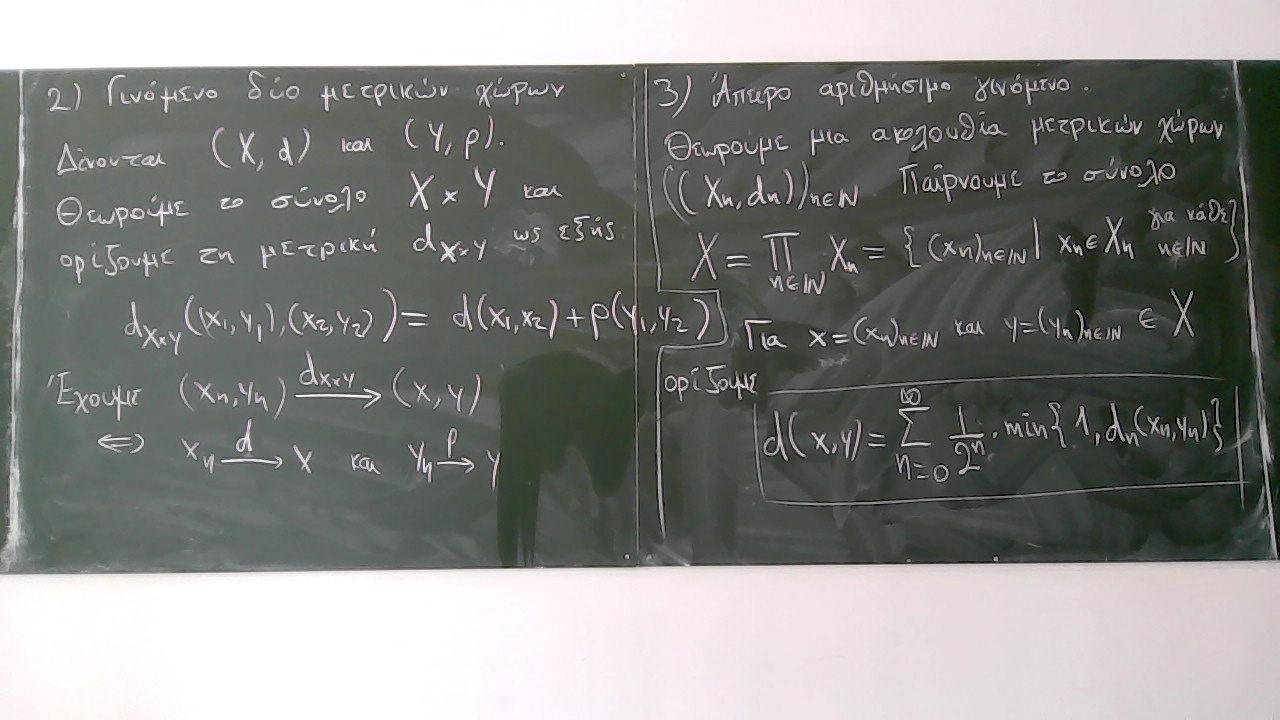 2) Γινόμενο δύο μετρικών χώρων
Δίνονται (X, d) και (Y, ρ).
Θεωρούμε το σύνολο X × Y και
ορίζουμε τη μετρική d_{X×Y} ως εξής
d_{X×Y}((x₁,y₁),(x₂,y₂)) = d(x₁,x₂) + ρ(y₁,y₂)
Έχουμε (xₙ,yₙ) —d_{X×Y}→ (x,y)
⟺ xₙ —d→ x και yₙ —ρ→ y
3) Άπειρο αριθμήσιμο γινόμενο.
Θεωρούμε μια ακολουθία μετρικών χώρων
((Xₙ,dₙ))_{n∈ℕ} Παίρνουμε το σύνολο
X = ∏_{n∈ℕ} Xₙ = {(xₙ)_{n∈ℕ} | xₙ ∈ Xₙ για κάθε n∈ℕ}
Για x=(xₙ)_{n∈ℕ} και y=(yₙ)_{n∈ℕ} ∈ X
ορίζουμε
d(x,y) = ∑_{n=0}^{∞} 1/2ⁿ · min{1, dₙ(xₙ,yₙ)}